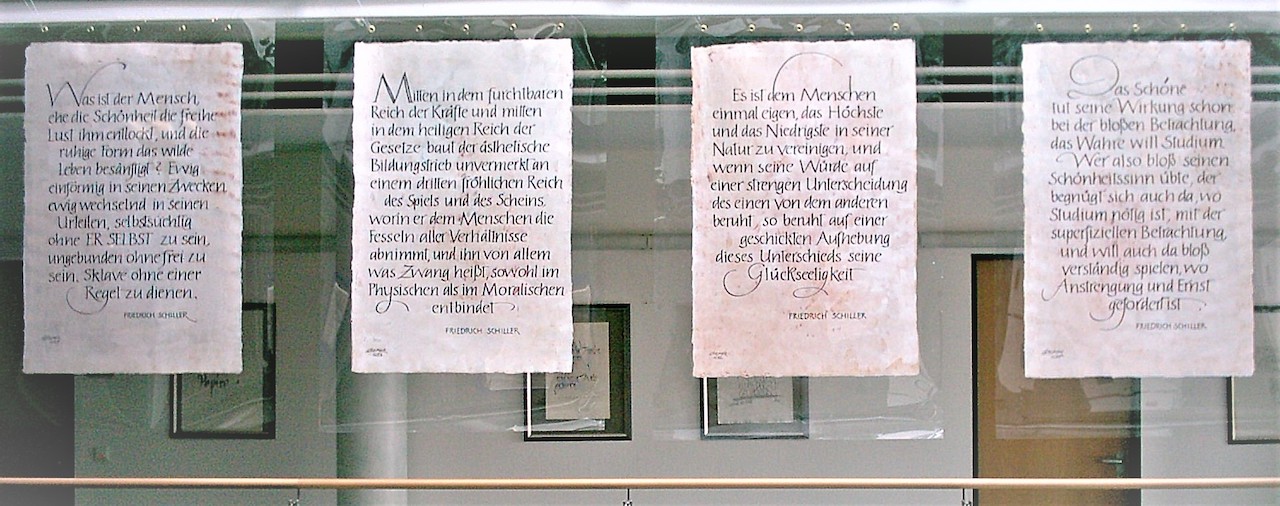 Was ist der Mensch,
ehe die Schönheit die freihe
Lust ihm entlockt, und die
ruhige Form das wilde
Leben besänftigt? Ewig
einförmig in seinen Zwecken
ewig wechselnd in seinen
Urteilen, selbstsüchtig
ohne ER SELBST zu sein,
ungebunden ohne frei zu
sein, Sklave ohne einer
Regel zu dienen.
FRIEDRICH SCHILLER
Mitten in dem furchtbaren
Reich der Kräfte und mitten
in dem heiligen Reich der
Gesetze baut der ästhetische
Bildungstrieb unvermerkt an
einem dritten fröhlichen Reich
des Spiels und des Scheins,
worin er dem Menschen die
Fesseln aller Verhältnisse
abnimmt, und ihn von allem
was Zwang heißt, sowohl im
Physischen als im Moralischen
entbindet
FRIEDRICH SCHILLER
Es ist dem Menschen
einmal eigen, das Höchste
und das Niedrigste in seiner
Natur zu vereinigen, und
wenn seine Würde auf
einer strengen Unterscheidung
des einen von dem anderen
beruht, so beruht auf einer
geschickten Aufhebung
dieses Unterschieds seine
Glückseeligkeit
FRIEDRICH SCHILLER
Das Schöne
tut seine Wirkung schon
bei der bloßen Betrachtung,
das Wahre will Studium.
Wer also bloß seinen
Schönheitssinn übte, der
begnügt sich auch da, wo
Studium nötig ist, mit der
superfiziellen Betrachtung,
und will auch da bloß
verständig spielen, wo
Anstrengung und Ernst
gefordert ist
FRIEDRICH SCHILLER